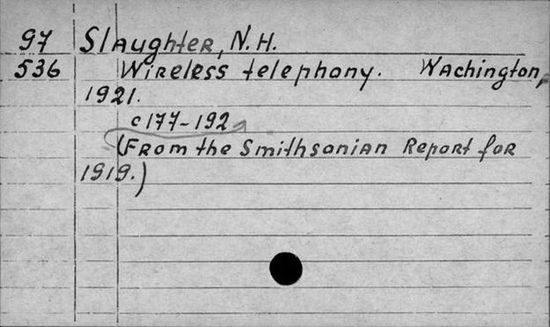 97 Slaughter, N.H.
536 Wireless telephony. Wachington,
1921.
c177-192
(From the Smithsonian Report for
1919.)